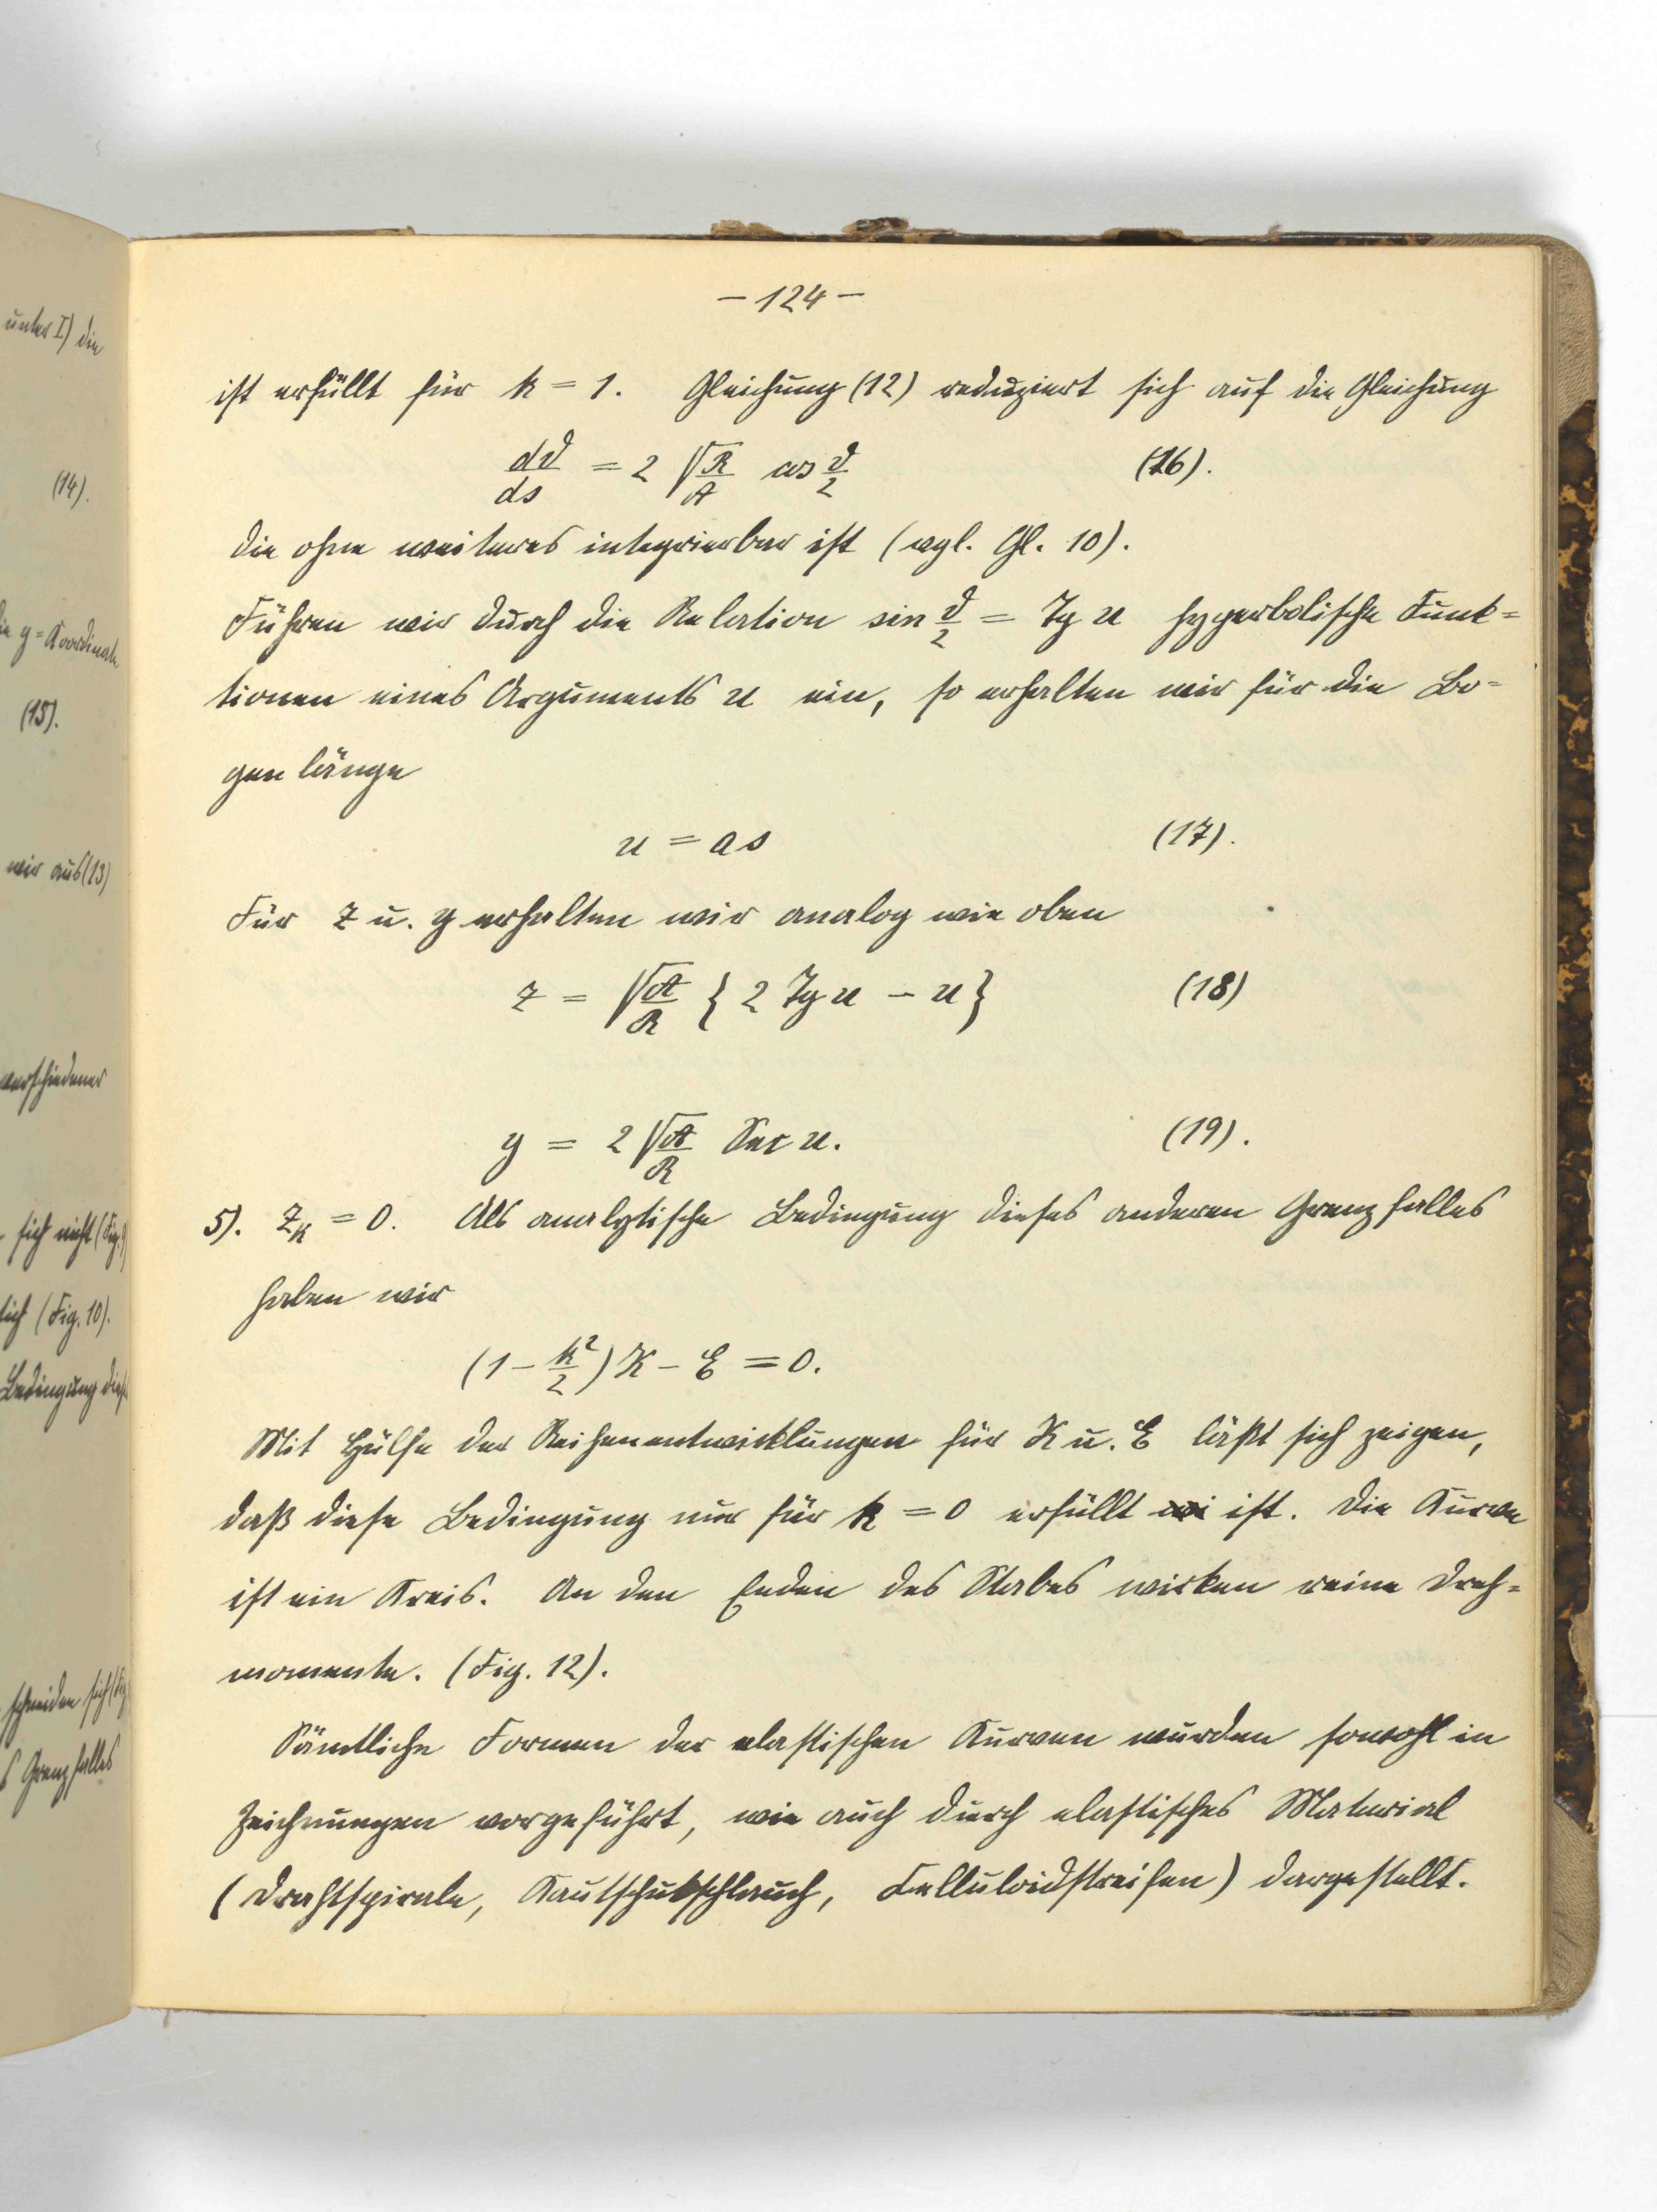 unter I) die
(14).
die y=Koordinate
(15).
wir aus (13)
verschiedener
sich nicht (Fig. 9)
lich (Fig. 10).
Bedingung dies
schneiden sich (Fig
s Grenzfalles
– 124 –
ist erfüllt für k = 1. Gleichung (12) reduziert sich auf die Gleichung
dϑ/ds = 2 √(R/A) cos ϑ/2 (16).
die ohne weiteres integrierbar ist (vgl. Gl. 10).
Führen wir durch die Relation sin ϑ/2 = Tg u hyperbolische Funk=
tionen eines Arguments u ein, so erhalten wir für die Bo=
gen länge
u = as (17).
Für z u. y erhalten wir analog wie oben
z = √(A/R) { 2 Tg u – u } (18)
y = 2 √(A/R) Sec u. (19).
5). z_K = 0. Als analytische Bedingung dieses anderen Grenzfalles
haben wir
(1 – k²/2) K – E = 0.
Mit Hülfe der Reihenentwicklungen für K u. E läßt sich zeigen,
daß diese Bedingung nur für k = 0 erfüllt wi ist. Die Kurve
ist ein Kreis. An den Enden des Stabes wirken reine Dreh=
momente. (Fig. 12).
Sämtliche Formen der elastischen Kurven wurden sowohl in
Zeichnungen vorgeführt, wie auch durch elastisches Material
(Drahtspirale, Kautschukschlauch, Celluloidstreifen) dargestellt.